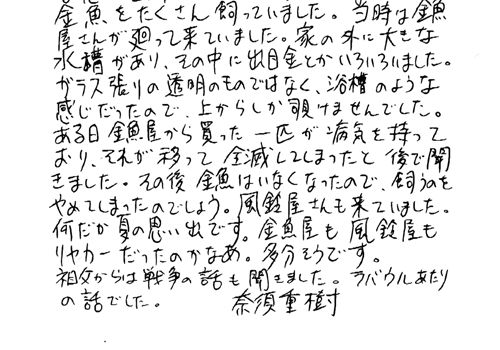 金魚をたくさん飼っていました。当時は金魚
屋さんが廻って来ていました。家の外に大きな
水槽があり、その中に出目金とかいろいろいました。
ガラス張りの透明のものではなく、浴槽のような
感じだったので、上からしか覗けませんでした。
ある日金魚屋から買った一匹が病気を持って
おり、それが移って全滅してしまったと後で聞
きました。その後金魚はいなくなったので、飼うのを
やめてしまったのでしょう。風鈴屋さんも来ていました。
何だか夏の思い出です。金魚屋も風鈴屋も
リヤカーだったのかなあ。多分そうです。
祖父からは戦争の話も聞きました。ラバウルあたり
の話でした。 奈須重樹